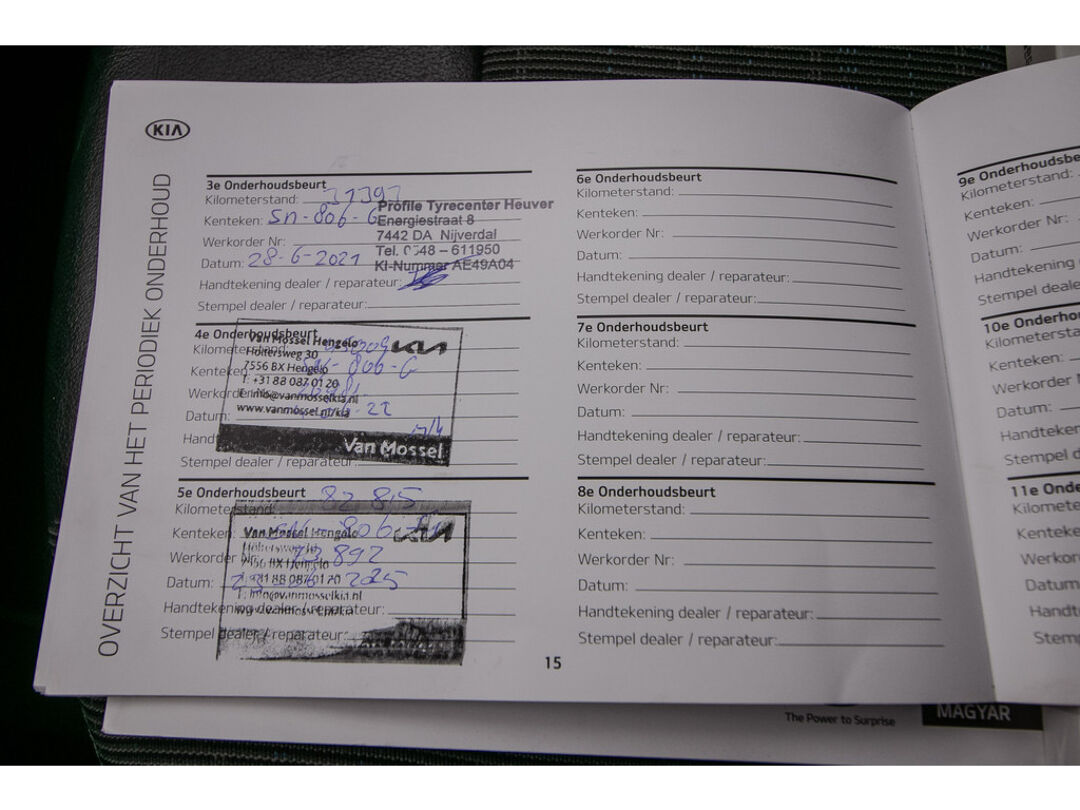 KIA
OVERZICHT VAN HET PERIODIEK ONDERHOUD
3e Onderhoudsbeurt
Kilometerstand:
Profile Tyrecenter Heuver
Kenteken: SN-806-G
Energiestraat 8
Werkorder Nr:
7442 DA Nijverdal
Tel. 0548 – 611950
Datum: 28-6-2021
KI-Nummer AE49A04
Handtekening dealer / reparateur:
Stempel dealer / reparateur:
4e Onderhoudsbeurt
Van Mossel Hengelo
KIA
Holtersweg 30
Kenteken 806-G
7556 BX Hengelo
T: +31 88 087 01 20
E: info@vanmosselkia.nl
www.vanmossel.nl/kia
Datum:
Van Mossel
Stempel dealer / reparateur:
5e Onderhoudsbeurt 82 815
Kenteken: 806
Van Mossel Hengelo
KIA
Werkorder Nr: 892
7556 BX Hengelo
Datum: 2025
T: +31 88 087 01 20
E: info@vanmosselkia.nl
Handtekening dealer / reparateur:
Stempel dealer / reparateur:
6e Onderhoudsbeurt
Kilometerstand:
Kenteken:
Werkorder Nr:
Datum:
Handtekening dealer / reparateur:
Stempel dealer / reparateur:
7e Onderhoudsbeurt
Kilometerstand:
Kenteken:
Werkorder Nr:
Datum:
Handtekening dealer / reparateur:
Stempel dealer / reparateur:
8e Onderhoudsbeurt
Kilometerstand:
Kenteken:
Werkorder Nr:
Datum:
Handtekening dealer / reparateur:
Stempel dealer / reparateur:
15
9e Onderhoudsbe
Kilometerstand:
Kenteken:
Werkorder Nr:
Datum:
Handtekening
Stempel deale
10e Onderho
Kilometersta
Kenteken:
Werkorder N
Datum:
Handteker
Stempel d
11e Onde
Kilomete
Kenteke
Werkor
Datum
Handt
Stem
The Power to Surprise
MAGYAR